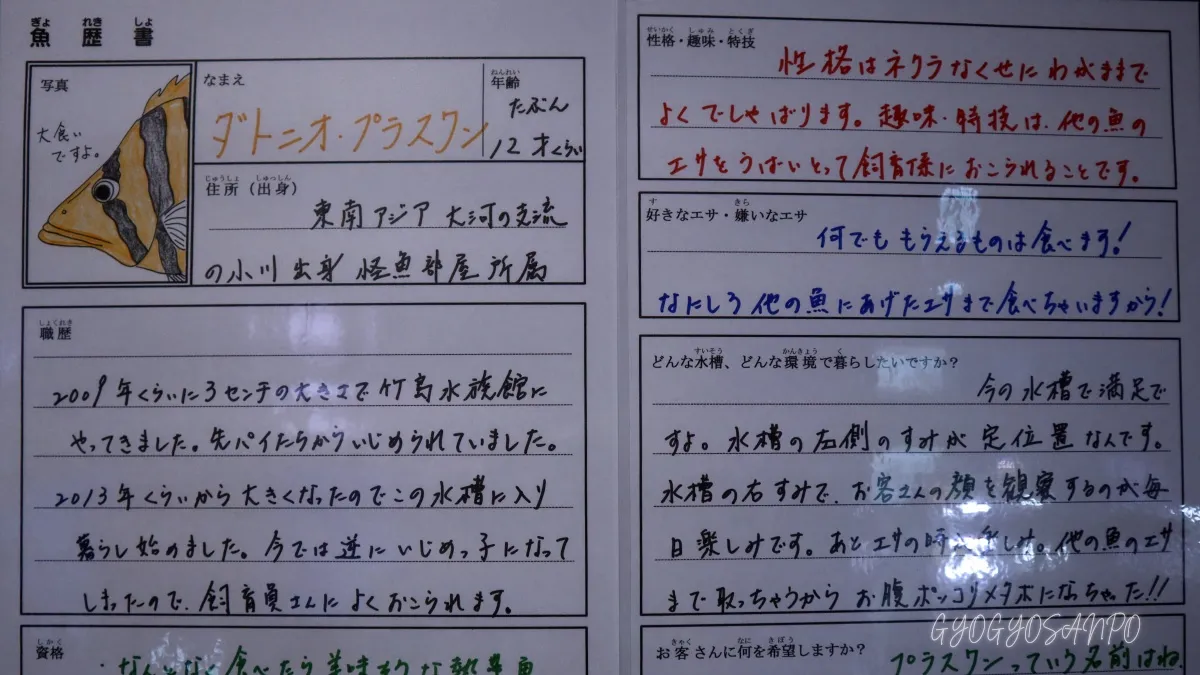 魚歴書
写真
大食い
ですよ。
なまえ
ダトニオ・プラスワン
年齢
たぶん
12才くらい
住所（出身）
東南アジア 大河の支流
の小川 出身 怪魚部屋 所属
職歴
2009年くらいに3センチの大きさで竹島水族館に
やってきました。先パイたちからいじめられていました。
2013年くらいから大きくなったのでこの水槽に入り
暮らし始めました。今では逆にいじめっ子になって
しまったので、飼育員さんによくおこられます。
資格
・なんとなく食べたら美味そうな観賞魚
性格・趣味・特技
性格はネクラなくせにわがままで
よくでしゃばります。趣味・特技は、他の魚の
エサをうばいとって飼育係におこられることです。
好きなエサ・嫌いなエサ
何でももらえるものは食べます！
なにしろ他の魚にあげたエサまで食べちゃいますから！
どんな水槽、どんな環境で暮らしたいですか？
今の水槽で満足で
すよ。水槽の左側のすみが定位置なんです。
水槽の右すみで、お客さんの顔を観察するのが毎
日楽しみです。あとエサの時も楽しみ。他の魚のエサ
まで取っちゃうからお腹ポッコリメタボになちゃった!!
お客さんに何を希望しますか？
プラスワンっていう名前はね、
GYOGYOSANPO